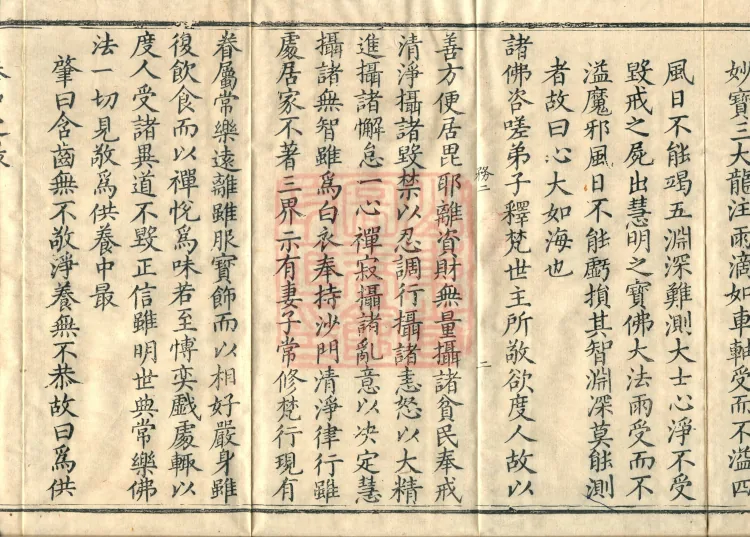 妙寶三大龍注雨滴如車軸受而不溢四
風日不能竭五淵深難測大士心淨不受
毀戒之屍出慧明之寶佛大法雨受而不
溢魔邪風日不能虧損其智淵深莫能測
者故曰心大如海也
諸佛咨嗟弟子釋梵世主所敬欲度人故以
務二
二
善方便居毘耶離資財無量攝諸貧民奉戒
清淨攝諸毀禁以忍調行攝諸恚怒以大精
進攝諸懈怠一心禪寂攝諸亂意以决定慧
攝諸無智雖為白衣奉持沙門清淨律行雖
處居家不著三界示有妻子常修梵行現有
眷屬常樂遠離雖服寶飾而以相好嚴身雖
復飲食而以禪悅為味若至博奕戲處輒以
度人受諸異道不毀正信雖明世典常樂佛
法一切見敬為供養中最
肇曰含齒無不敬淨養無不恭故曰為供